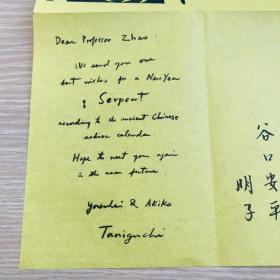 Dear Professor Zhao :
We send you our
best wishes for a New Year
of Serpent
according to the ancient Chinese
zodiac calendar.
Hope to meet you again
in the near future.
Yasuhei & Akiko
Taniguchi
谷口安平
明子